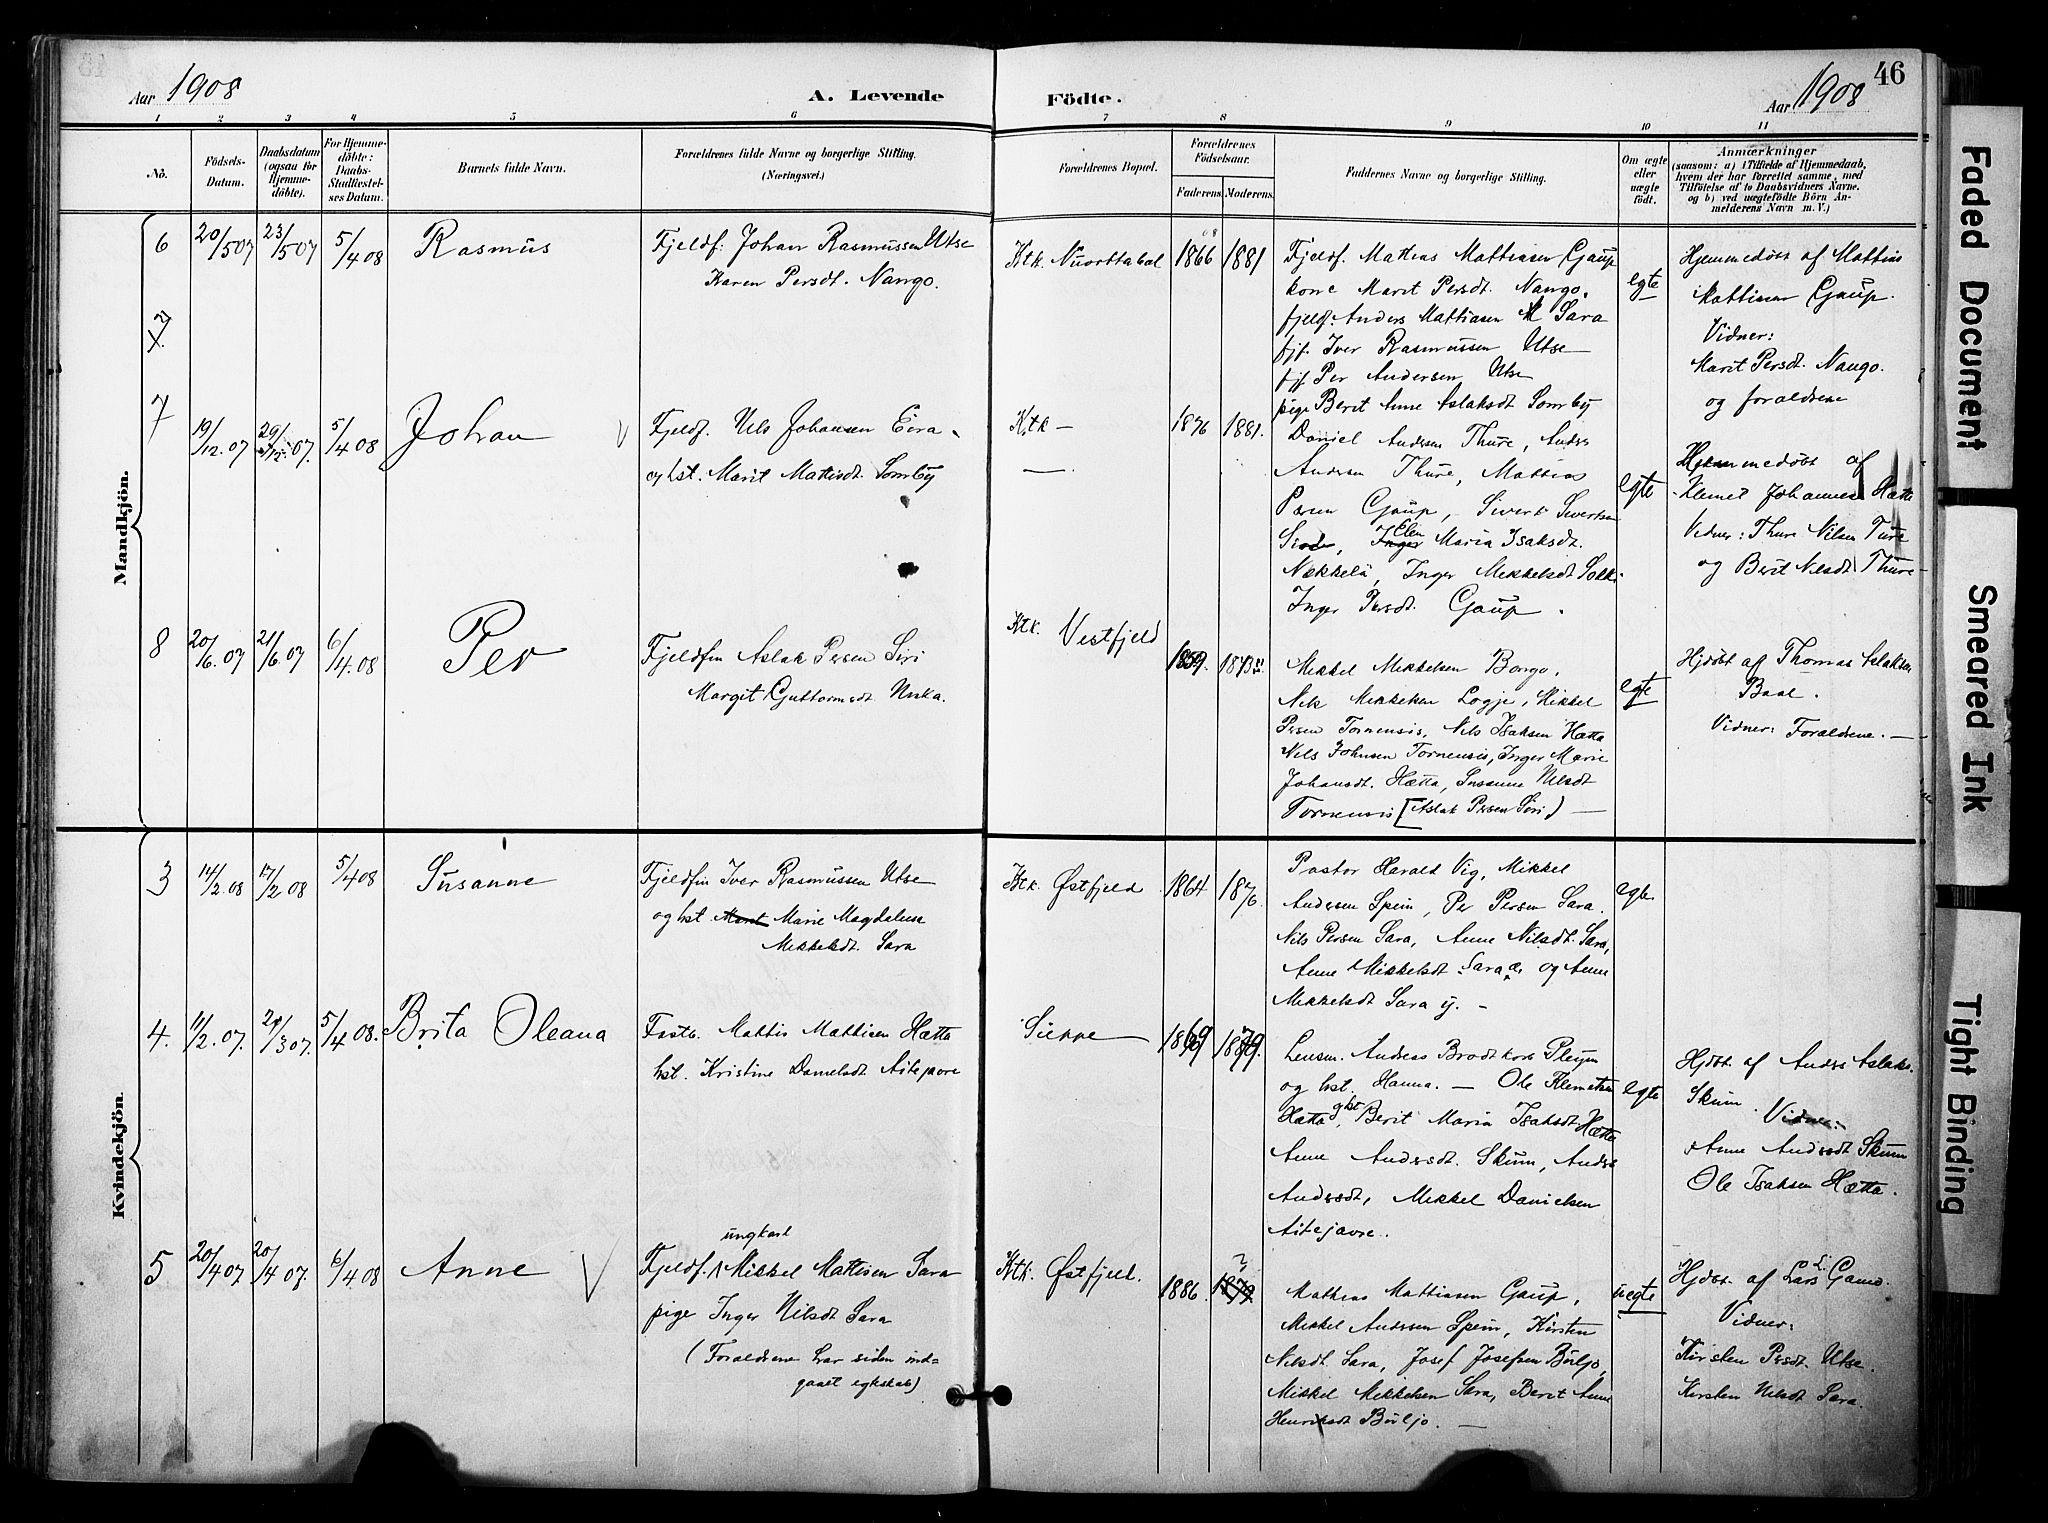 46
Aar 1908
A. Levende
Födte.
Aar 1908
1 2 3 4 5 6 7 8 9 10 11
No.
Födsels-
Datum.
Daabsdatum
(ogsaa for
Hjemme-
döbte).
For Hjemme-
döbte:
Daabs-
Stadfæstel-
ses Datum.
Barnets fulde Navn.
Forældrenes fulde Navne og borgerlige Stilling.
(Næringsvei.)
Forældrenes Bopæl.
Forældrenes
Födselsaar.
Faderens. Moderens.
Faddernes Navne og borgerlige Stilling.
Om ægte
eller
uægte
födt.
Anmærkninger
(saasom: a) i Tilfælde af Hjemmedaab,
hvem der har forrettet samme, med
Tilföielse af to Daabsvidners Navne,
og b) ved uægtefödte Börn An-
melderens Navn m. V.)
Mandkjön.
6
20/5 07
23/5 07
5/4 08
Rasmus
Fjeldf. Johan Rasmussen Utse
Karen Persdt. Nango.
Ktk. Nuorttabal
1866
1881
Fjeldf. Mathias Mattiasen Gaup
kone Marit Persdt. Nango,
fjeldf. Anders Mattiasen Sara
fjf. Iver Rasmussen Utse
fjf. Per Andersen Utse
pige Berit Anne Aslaksdt Somby
egte
Hjemmedøbt af Mattias
Mattisen Gaup.
Vidner:
Marit Persdt. Nango.
og forældrene
7
7
19/12 07
29/12 07.
5/4 08
Johan
Fjeldf. Nils Johansen Eira
og hst. Marit Mattisdt. Somby
Ktk –
1876
1881.
Daniel Andersen Thure, Anders
Andersen Thure, Mattias
Persen Gaup, Sivert Sivertsen
Elen
Inger Maria Isaksdt.
Nækkelä, Inger Mikkelsdt
Inger Persdt. Gaup.
egte
Hjemmedøbt af
Klemet Johannes Hætta
Vidner: Thure Nilsen Ture
og Berit Nilsdt. Thure
8
20/6. 07
21/6 07
6/4. 08
Per
Fjeldfin Aslak Persen Siri
Margit Guttormsdt Niska.
Ktk. Vestfjeld
1859.
Mikkel Mikkelsen Bongo,
Nils Mikkelsen Logje, Mikkel
Persen Tornensis, Nils Isaksen Hætta
Nils Johnsen Tornensis, Inger Marie
Johansdt. Hætta, Susanna Nilsdt
Tornensis [Aslak Persen Siri) –
egte
Hjdøbt af Thomas Aslaksen
Baal.
Vidner: Forældrene. –
Kvindekjön.
3
14/2 08
17/2 08
5/4 08
Susanne
Fjeldfin Iver Rasmussen Utse
og hst. Marit Marie Magdalena
Mikkelsdt. Sara
Ktk. Østfjeld
1864
1876.
Pastor Harald Vig, Mikkel
Andersen Spein, Per Persen Sara
Nils Persen Sara, Anne Nilsdt. Sara,
Anne Mikkelsdt Sara æ. og Anne
Mikkelsdt Sara y. –
egte
4.
11/2. 07.
21/3 07.
5/4 08.
Brita Oleana
Fastb. Mattis Mattisen Hætta
hst. Kristine Danielsdt Aitejavre
Sieppe
1869
1879.
Lensm. Andreas Brodtkorb Pleym
og hst. Hanna. – Ole Klemetsen
Hætta og hst, Berit Maria Isaksdt Hætta
Anne Andersdt. Skum, Anders
Andersdt, Mikkel Danielsen
Aitejavre.
egte
Hjdøbt af Anders Aslaks.
Skum. Vidner:
Anne Andersdt Skum
Ole Isaksen Hætta.
5
20/4 07.
20/4 07.
6/4 08
Anne
ungkarl
Fjeldf. Mikkel Mattisen Sara
pige Inger Nilsdt Sara
(Forældrene har siden ind=
gaaet egtskab)
Ktk. Østfjeld.
1886.
1879
Mathias Mattiasen Gaup,
Mikkel Andersen Spein, Kirsten
Nilsdt. Sara, Josef Josefsen Buljo,
Mikkel Mikkelsen Sara, Berit Anne
Henriksdt Buljo. –
uegte
Hjdøbt. af Lars L. Gaino.
Vidner:
Kirsten Persdt. Utse.
Kirsten Nilsdt Sara.
Faded Document
Smeared Ink
Tight Binding